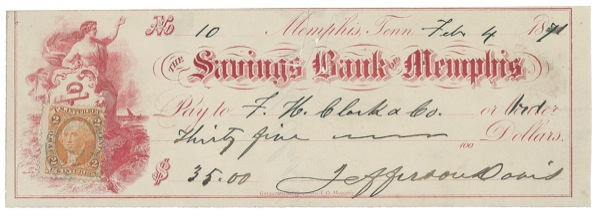 No 10 Memphis, Tenn. Feb 4 1871
THE Savings Bank OF Memphis
Pay to F. H. Clark & Co. or order
Thirty five 100 Dollars.
$ 35.00 Jefferson Davis